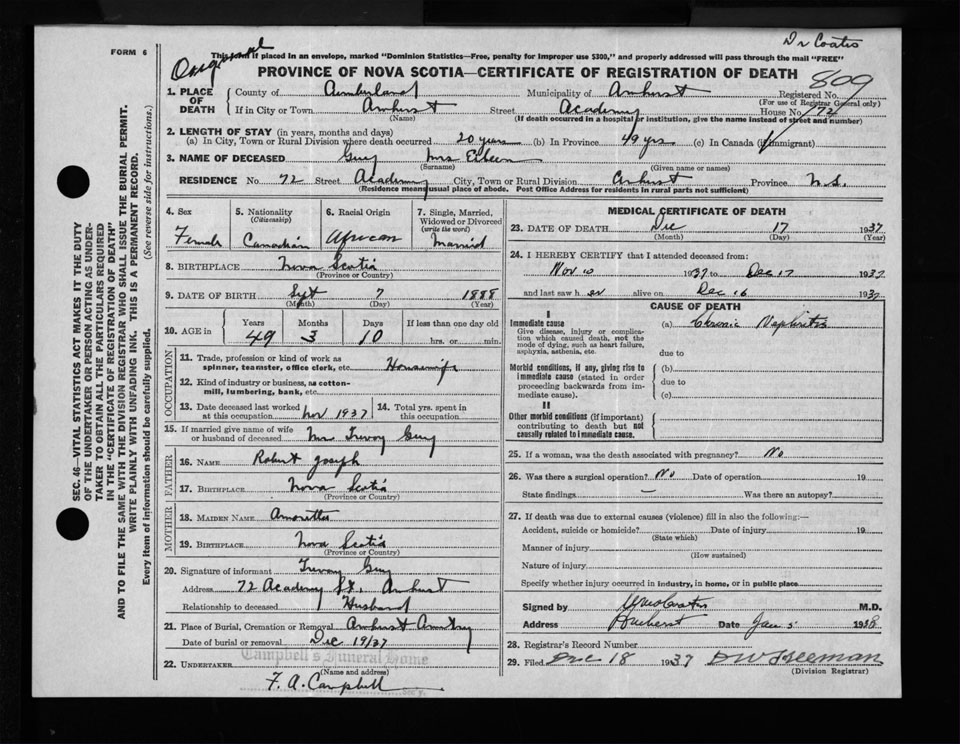 FORM 6
Original
Dr Coates
This form if placed in an envelope, marked "Dominion Statistics—Free, penalty for improper use $300," and properly addressed will pass through the mail "FREE"
PROVINCE OF NOVA SCOTIA—CERTIFICATE OF REGISTRATION OF DEATH
809
1. PLACE OF DEATH
County of Cumberland Municipality of Amherst Registered No.
(For use of Registrar General only)
If in City or Town Amherst Street Academy House No. 72
(Name) (If death occurred in a hospital or institution, give the name instead of street and number)
2. LENGTH OF STAY (in years, months and days)
(a) In City, Town or Rural Division where death occurred 20 years (b) In Province 49 yrs (c) In Canada (if immigrant)
3. NAME OF DECEASED Guy Mrs
(Surname) (Given name or names)
RESIDENCE No. 72 Street Academy City, Town or Rural Division Amherst Province N.S.
(Residence means usual place of abode. Post Office Address for residents in rural parts not sufficient)
4. Sex Female
5. Nationality (Citizenship) Canadian
6. Racial Origin African
7. Single, Married, Widowed or Divorced (write the word) Married
8. BIRTHPLACE Nova Scotia
(Province or Country)
9. DATE OF BIRTH Sept 7 1888
(Month) (Day) (Year)
10. AGE in Years Months Days If less than one day old
49 3 10 hrs. or min.
OCCUPATION
11. Trade, profession or kind of work as spinner, teamster, office clerk, etc. Housewife
12. Kind of industry or business, as cotton-mill, lumbering, bank, etc.
13. Date deceased last worked at this occupation Nov 1937
14. Total yrs. spent in this occupation
15. If married give name of wife or husband of deceased Mr Guy
FATHER
16. NAME Robert Joseph
17. BIRTHPLACE Nova Scotia
(Province or Country)
MOTHER
18. MAIDEN NAME
19. BIRTHPLACE Nova Scotia
(Province or Country)
20. Signature of informant Guy
Address 72 Academy St. Amherst
Relationship to deceased Husband
21. Place of Burial, Cremation or Removal Amherst
Date of burial or removal Dec 19/37
Campbell's Funeral Home
22. UNDERTAKER
(Name and address)
F. A. Campbell
MEDICAL CERTIFICATE OF DEATH
23. DATE OF DEATH Dec 17 1937
(Month) (Day) (Year)
24. I HEREBY CERTIFY that I attended deceased from:
Nov 10 1937 to Dec 17 1937
and last saw her alive on Dec 16 1937
CAUSE OF DEATH
I
Immediate cause
Give disease, injury or complication which caused death, not the mode of dying, such as heart failure, asphyxia, asthenia, etc.
(a) Chronic Nephritis
due to
Morbid conditions, if any, giving rise to immediate cause (stated in order proceeding backwards from immediate cause).
(b)
due to
(c)
II
Other morbid conditions (if important) contributing to death but not causally related to immediate cause.
25. If a woman, was the death associated with pregnancy? No
26. Was there a surgical operation? No Date of operation 19
State findings — Was there an autopsy?
27. If death was due to external causes (violence) fill in also the following:—
Accident, suicide or homicide? Date of injury 19
(State which)
Manner of injury
(How sustained)
Nature of injury
Specify whether injury occurred in industry, in home, or in public place
Signed by M.D.
Address Amherst Date Jan 5 1938
28. Registrar's Record Number
29. Filed Dec 18 1937 D W Freeman
(Division Registrar)
SEC. 46—VITAL STATISTICS ACT MAKES IT THE DUTY
OF THE UNDERTAKER OR PERSON ACTING AS UNDER-
TAKER TO OBTAIN ALL THE PARTICULARS REQUIRED
IN THE "CERTIFICATE OF REGISTRATION OF DEATH"
AND TO FILE THE SAME WITH THE DIVISION REGISTRAR WHO SHALL ISSUE THE BURIAL PERMIT.
WRITE PLAINLY WITH UNFADING INK. THIS IS A PERMANENT RECORD.
Every item of information should be carefully supplied. (See reverse side for instructions.)